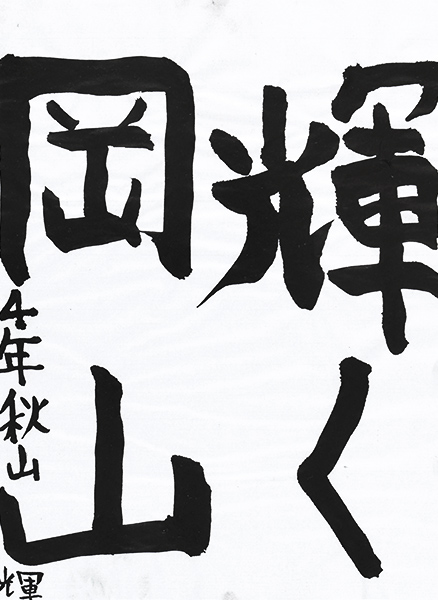 輝く
岡山
4年秋山輝